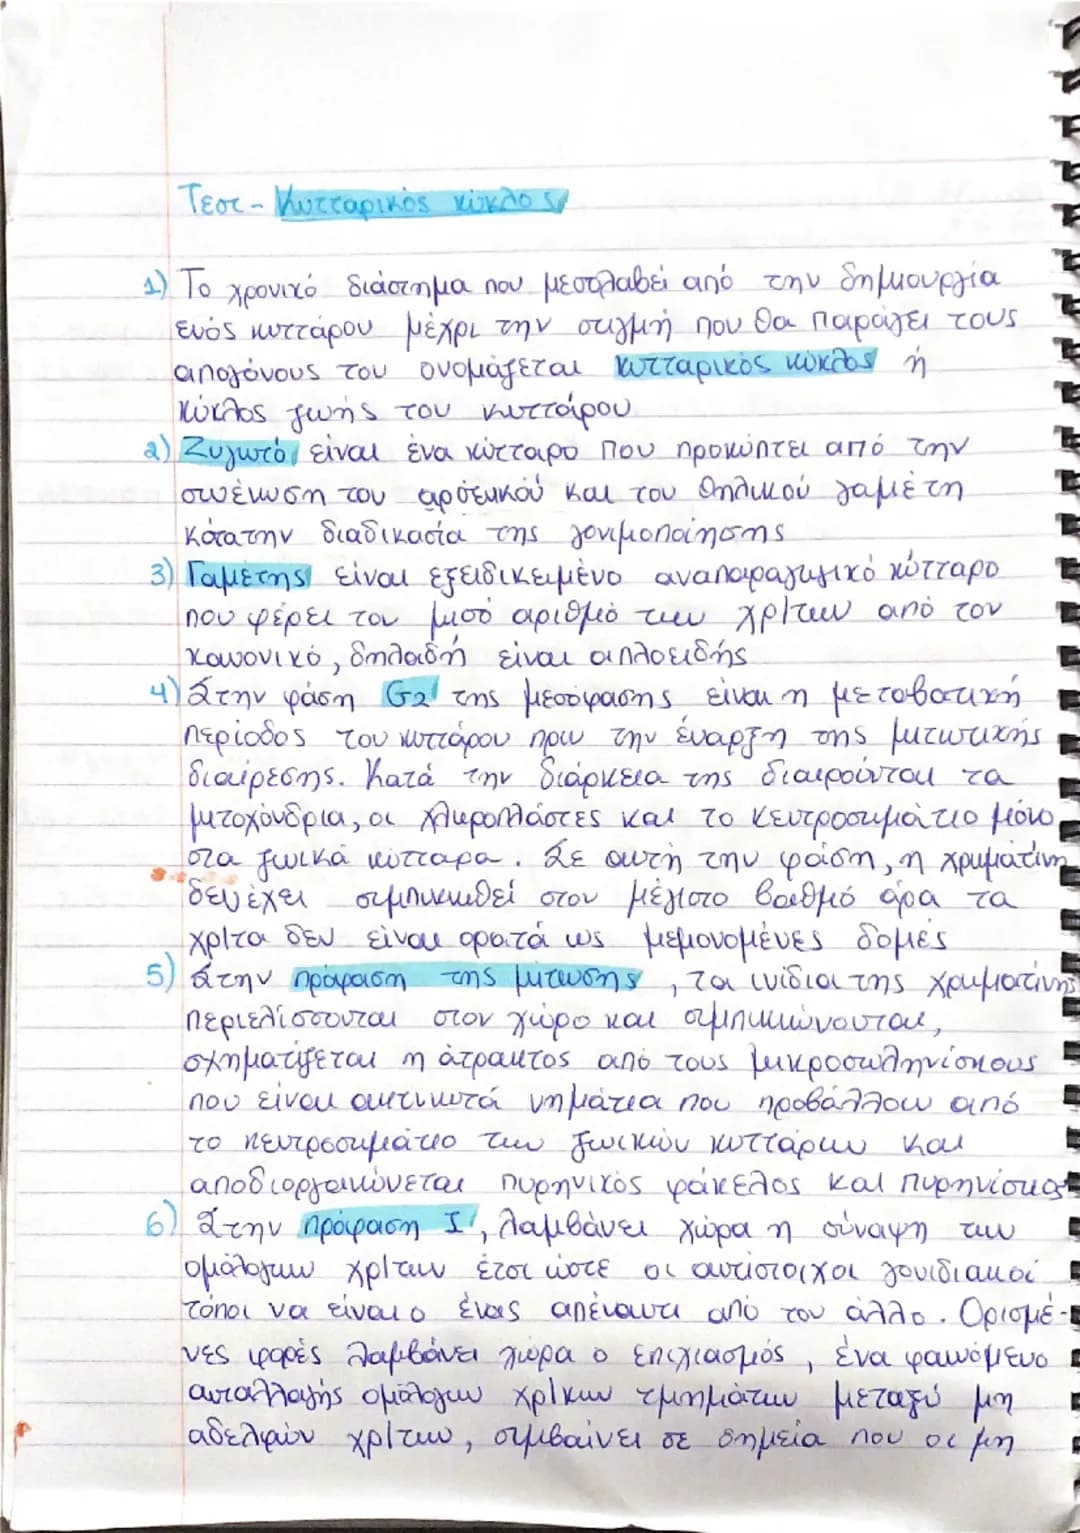 Τεστ - Κυτταρικός κύκλος
1) Το χρονικό διάστημα που μεσολαβεί από την δημιουργία
ενός κυττάρου μέχρι την στιγμή που θα παράγει τους
απογόνους του ονομάζεται κυτταρικός κύκλος ή
κύκλος ζωής του κυττάρου
2) Ζυγωτό είναι ένα κύτταρο που προκύπτει από την
συνένωση του αρσενικού και του θηλικού γαμέτη
κάτα την διαδικασία της γονιμοποίησης
3) Γαμέτης είναι εξειδικευμένο αναπαραγωγικό κύτταρο
που φέρει τον μισό αριθμό των χρ/των από τον
κανονικό, δηλαδή είναι απλοειδής
4) Στην φάση G2 της μεσόφασης είναι η μεταβατική
περίοδος του κυττάρου πριν την έναρξη της μιτωτικής
διαίρεσης. Κατά την διάρκεια της διαιρούνται τα
μιτοχόνδρια, οι χλωροπλάστες και το κεντροσωμάτιο μόνο
στα ζωικά κύτταρα. Σε αυτή την φάση, η χρωματίνη
δεν έχει συμπυκνωθεί στον μέγιστο βαθμό άρα τα
χρ/τα δεν είναι ορατά ως μεμονομένες δομές
5) Στην πρόφαση της μίτωσης, τα ινίδια της χρωματίνης
περιελίσσονται στον χώρο και συμπυκνώνονται,
σχηματίζεται η άτρακτος από τους μικροσωληνίσκους
που είναι ακτινωτά νημάτια που προβάλλουν από
το κεντροσωμάτιο των ζωικών κυττάρων και
αποδιοργανώνεται πυρηνικός φάκελος και πυρηνίσκος
6) Στην πρόφαση I, λαμβάνει χώρα η σύναψη των
ομόλογων χρ/των έτσι ώστε οι αντίστοιχοι γονιδιακοί
τόποι να είναι ο ένας απέναντι από τον άλλο. Ορισμέ-
νες φορές λαμβάνει χώρα ο επιχιασμός, ένα φαινόμενο
ανταλλαγής ομόλογων χρ/κων τμημάτων μεταξύ μη
αδελφών χρ/των, συμβαίνει σε σημεία που οι μη